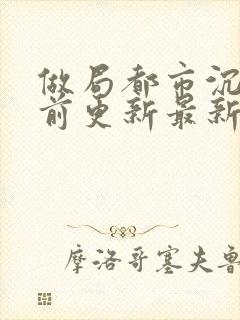 做局都市沉
前更新最新
摩洛哥塞夫鲁